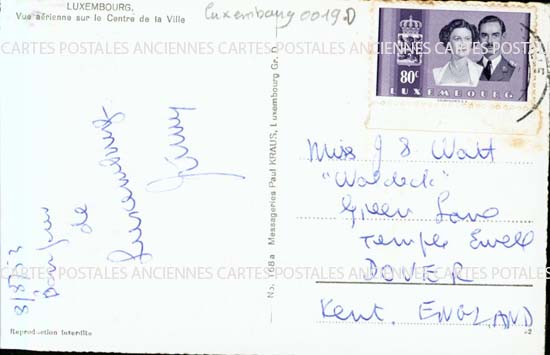 LUXEMBOURG.
Vue aérienne sur le Centre de la Ville
Luxembourg 0019 D
80c
LUXEMBOURG
CARTES POSTALES ANCIENNES CARTES POSTALES ANCIENNES CARTES POSTALES
8/8/53
Bonjour
de
Luxembourg
No. 168a Messageries Paul KRAUS, Luxembourg Gr. D.
Miss J S Watt
"Waldeck"
Green Lane
Temple Ewell
DOVER
Kent. ENGLAND
Reproduction interdite